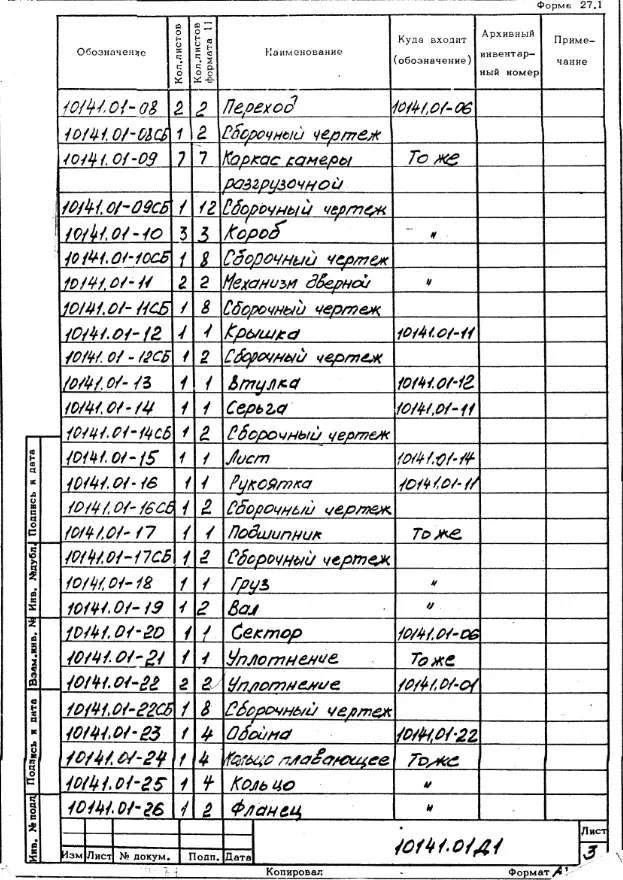 Форма 27.1
Обозначение Кол.листов Кол.листов формата 11 Наименование Куда входит (обозначение) Архивный инвентарный номер Примечание
10141.01-08 2 2 Переход 10141.01-06
10141.01-08СБ 1 2 Сборочный чертеж
10141.01-09 7 7 Каркас камеры То же
разгрузочной
10141.01-09СБ 1 12 Сборочный чертеж
10141.01-10 3 3 Короб "
10141.01-10СБ 1 8 Сборочный чертеж
10141.01-11 2 2 Механизм дверной "
10141.01-11СБ 1 8 Сборочный чертеж
10141.01-12 1 1 Крышка 10141.01-11
10141.01-12СБ 1 2 Сборочный чертеж
10141.01-13 1 1 Втулка 10141.01-12
10141.01-14 1 1 Серьга 10141.01-11
10141.01-14СБ 1 2 Сборочный чертеж
10141.01-15 1 1 Лист 10141.01-14
10141.01-16 1 1 Рукоятка 10141.01-11
10141.01-16СБ 1 2 Сборочный чертеж
10141.01-17 1 1 Подшипник То же
10141.01-17СБ 1 2 Сборочный чертеж
10141.01-18 1 1 Груз "
10141.01-19 1 2 Вал "
10141.01-20 1 1 Сектор 10141.01-06
10141.01-21 1 1 Уплотнение То же
10141.01-22 2 2 Уплотнение 10141.01-01
10141.01-22СБ 1 8 Сборочный чертеж
10141.01-23 1 4 Обойма 10141.01-22
10141.01-24 1 4 Кольцо плавающее То же
10141.01-25 1 4 Кольцо "
10141.01-26 1 2 Фланец "
Подпись и дата
Инв. №дубл.
Взам.инв. №
Подпись и дата
Инв. №подл
Изм Лист № докум. Подп. Дата
10141.01Д1
Лист
3
Копировал Формат